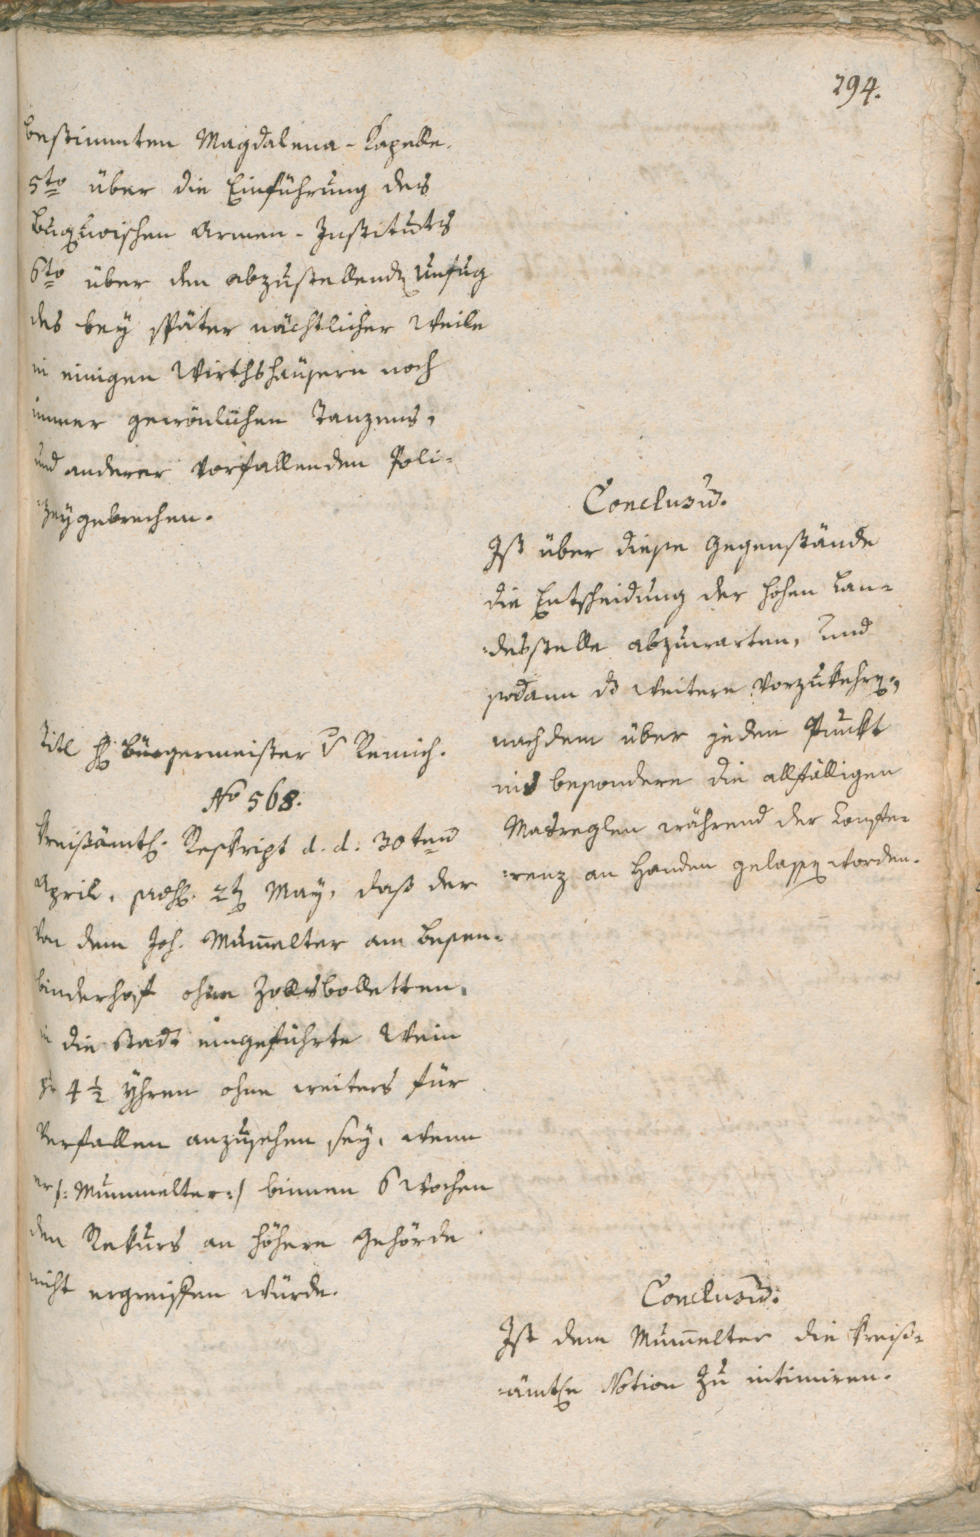 294.
bestimmten Magdalena-Kapelle.
5to über die Einführung des
Buquoischen Armen-Instituts
6to über den abzustellenden Unfug
des bey später nächtlicher Weile
in einigen Wirthshäusern noch
immer gewönlichen Tanzens,
und anderer vorfallenden Poli-
zeygebrechen.
Conclusum.
Ist über diese Gegenstände
die Entscheidung der hohen Lan-
desstelle abzuwarten, und
sodann das weitere vorzukehren,
nachdem über jeden Punkt
insbesondere die allfälligen
Masreglen während der Konfe-
renz an Handen gelassen worden.
Titl H: Bürgermeister v Remich.
No 568.
Kreißämtl. Reskript d. d. 30ten
April, 2ten May, daß der
von dem Joh. Mum̄elter am Besen-
binderhof ohne Zollsbolletten,
in die Stadt eingeführte Wein
zu 4 1/2 Yhren ohne weiters für
verfallen anzusehen sey, wenn
er /: Mummelter :/ binnen 6 Wochen
den Rekurs an höhere Behörde
nicht ergreiffen würde.
Conclusum.
Ist dem Mum̄elter die kreiß-
ämtle Notion zu intimiren.